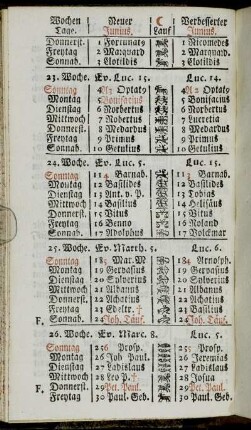 Wochen Neuer ☾ Verbesserter
Tage. Junius, Lauf Junius.
Donnerst. 1 Fortunat9 1 Nicomedes
Freytag 2 Marquard 2 Marquard
Sonnab. 3 Clotildis 3 Clotildis
23. Woche. Ev. Luc. 15. Luc. 14.
Sonntag 4 Optat9 4 Optat9
Montag 5 Bonifacius 5 Bonifacius
Dienstag 6 Norbertus 6 Norbertus
Mittwoch 7 Robertus 7 Lucretia
Donnerst. 8 Medardus 8 Medardus
Freytag 9 Primus 9 Primus
Sonnab. 10 Getulius 10 Getulius
24. Woche. Ev. Luc. 5. Luc. 15.
Sonntag 11 Barnab. 11 Barnab.
Montag 12 Basilides 12 Basilides
Dienstag 13 Ant. v. P. 13 Tobias
Mittwoch 14 Basilius 14 Helisäus
Donnerst. 15 Vitus 15 Vitus
Freytag 16 Benno 16 Roland
Sonnab. 17 Adolphus 17 Volckmar
25. Woche. Ev. Matth. 5. Luc. 6.
Sonntag 18 Mar. M 18 Arnolph.
Montag 19 Gervasius 19 Gervasius
Dienstag 20 Sylverius 20 Sylverius
Mittwoch 21 Albanus 21 Albanus
Donnerst. 22 Achatius 22 Achatius
Freytag 23 Edeltr. † 23 Basilius
F. Sonnab. 24 Joh. Täuf. 24 Joh. Täuf.
26. Woche. Ev. Marc. 8. Luc. 5.
Sonntag 25 Prosp. 25 Prosp.
Montag 26 Joh Paul. 26 Jeremias
Dienstag 27 Ladislaus 27 Ladislaus
Mittwoch 28 Leo P. † 28 Josua
F. Donnerst. 29 Pet. Paul. 29 Pet. Paul.
Freytag 30 Paul. Ged. 30 Paul. Geb.